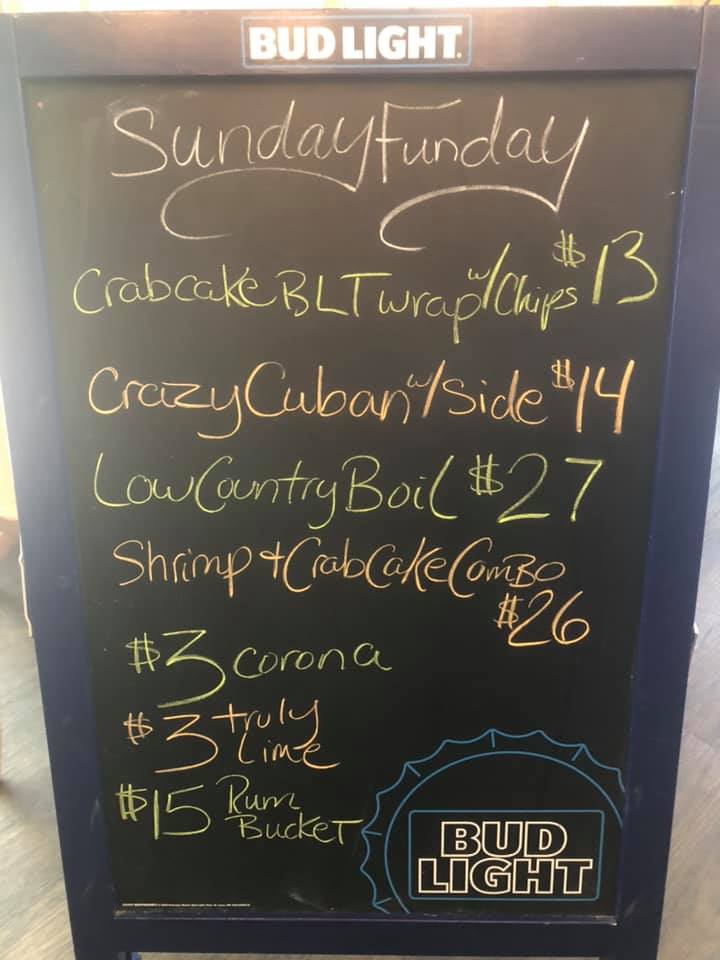 BUD LIGHT.
Sunday Funday
Crabcake BLT wrap w/ Chips $13
Crazy Cuban w/ Side $14
Low Country Boil $27
Shrimp + Crab Cake Combo
$26
$3 corona
$3 truly
Lime
$15 Rum
Bucket
BUD
LIGHT